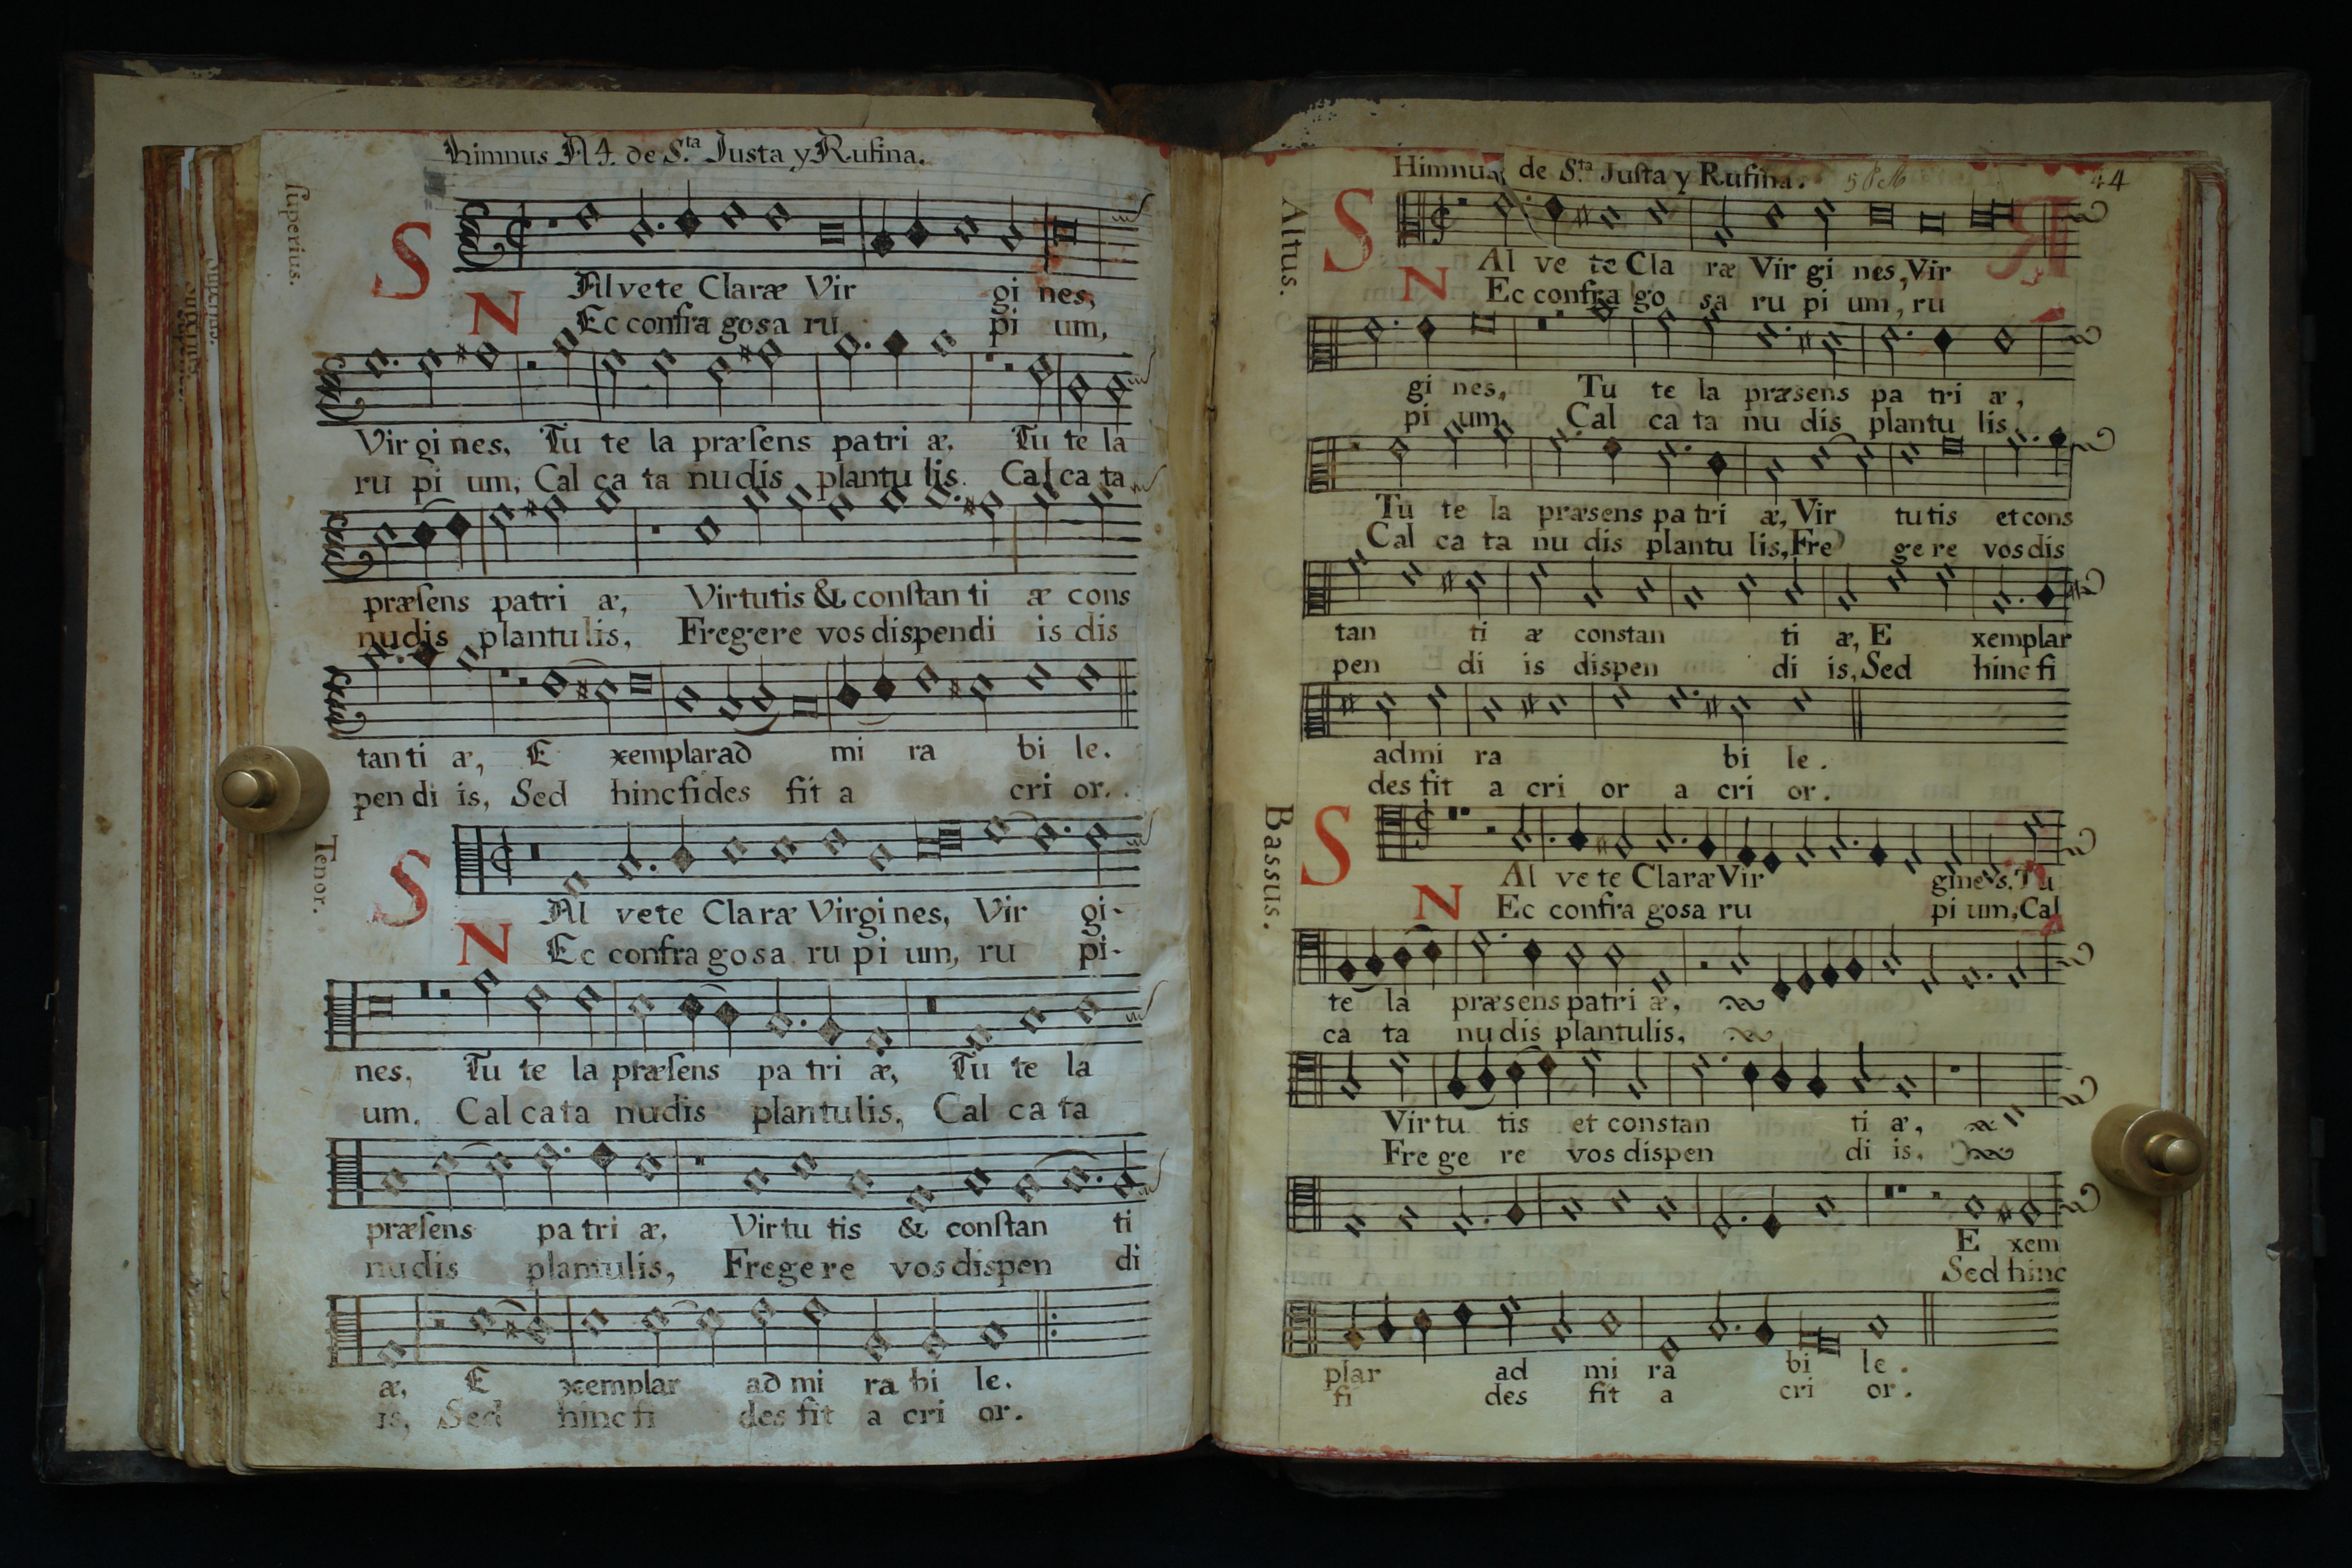 Himnus A 4. de S.ta Justa y Rufina.
superius.
S Alvete Claræ Vir gi nes,
N Ec confra gosa ru pi um,
Vir gi nes, Tu te la præsens patri æ. Tu te la
ru pi um, Cal ca ta nudis plantu lis. Cal ca ta
præsens patri æ, Virtutis & constan ti æ cons
nudis plantulis, Fregere vos dispendi is dis
tan ti æ, E xemplar ad mi ra bi le.
pen di is, Sed hinc fides fit a cri or.
Tenor.
S Al vete Claræ Virgi nes, Vir gi-
N Ec confra gosa ru pi um, ru pi-
nes, Tu te la præsens pa tri æ, Tu te la
um, Cal ca ta nudis plantulis, Cal ca ta
præsens pa tri æ, Virtu tis & constan ti
nudis plantulis, Fregere vos dispen di
æ, E xemplar ad mi ra bi le.
is, Sed hinc fi des fit a cri or.
Himnus de S.ta Justa y Rufina.
44
Altus.
S Al ve te Cla ræ Vir gi nes, Vir
N Ec confra go sa ru pi um, ru
gi nes, Tu te la præsens pa tri æ,
pi um, Cal ca ta nu dis plantu lis.
Tu te la præsens pa tri æ, Vir tutis et cons
Cal ca ta nu dis plantu lis, Fre ge re vos dis
tan ti æ constan ti æ, E xemplar
pen di is dispen di is, Sed hinc fi
admi ra bi le.
des fit a cri or a cri or.
Bassus.
S Al ve te Claræ Vir gines, Tu
N Ec confra gosa ru pi um, Cal
te la præsens patri æ,
ca ta nudis plantulis,
Virtu tis et constan ti æ,
Frege re vos dispen di is,
E xem
Sed hinc
plar ad mi ra bi le.
fi des fit a cri or.